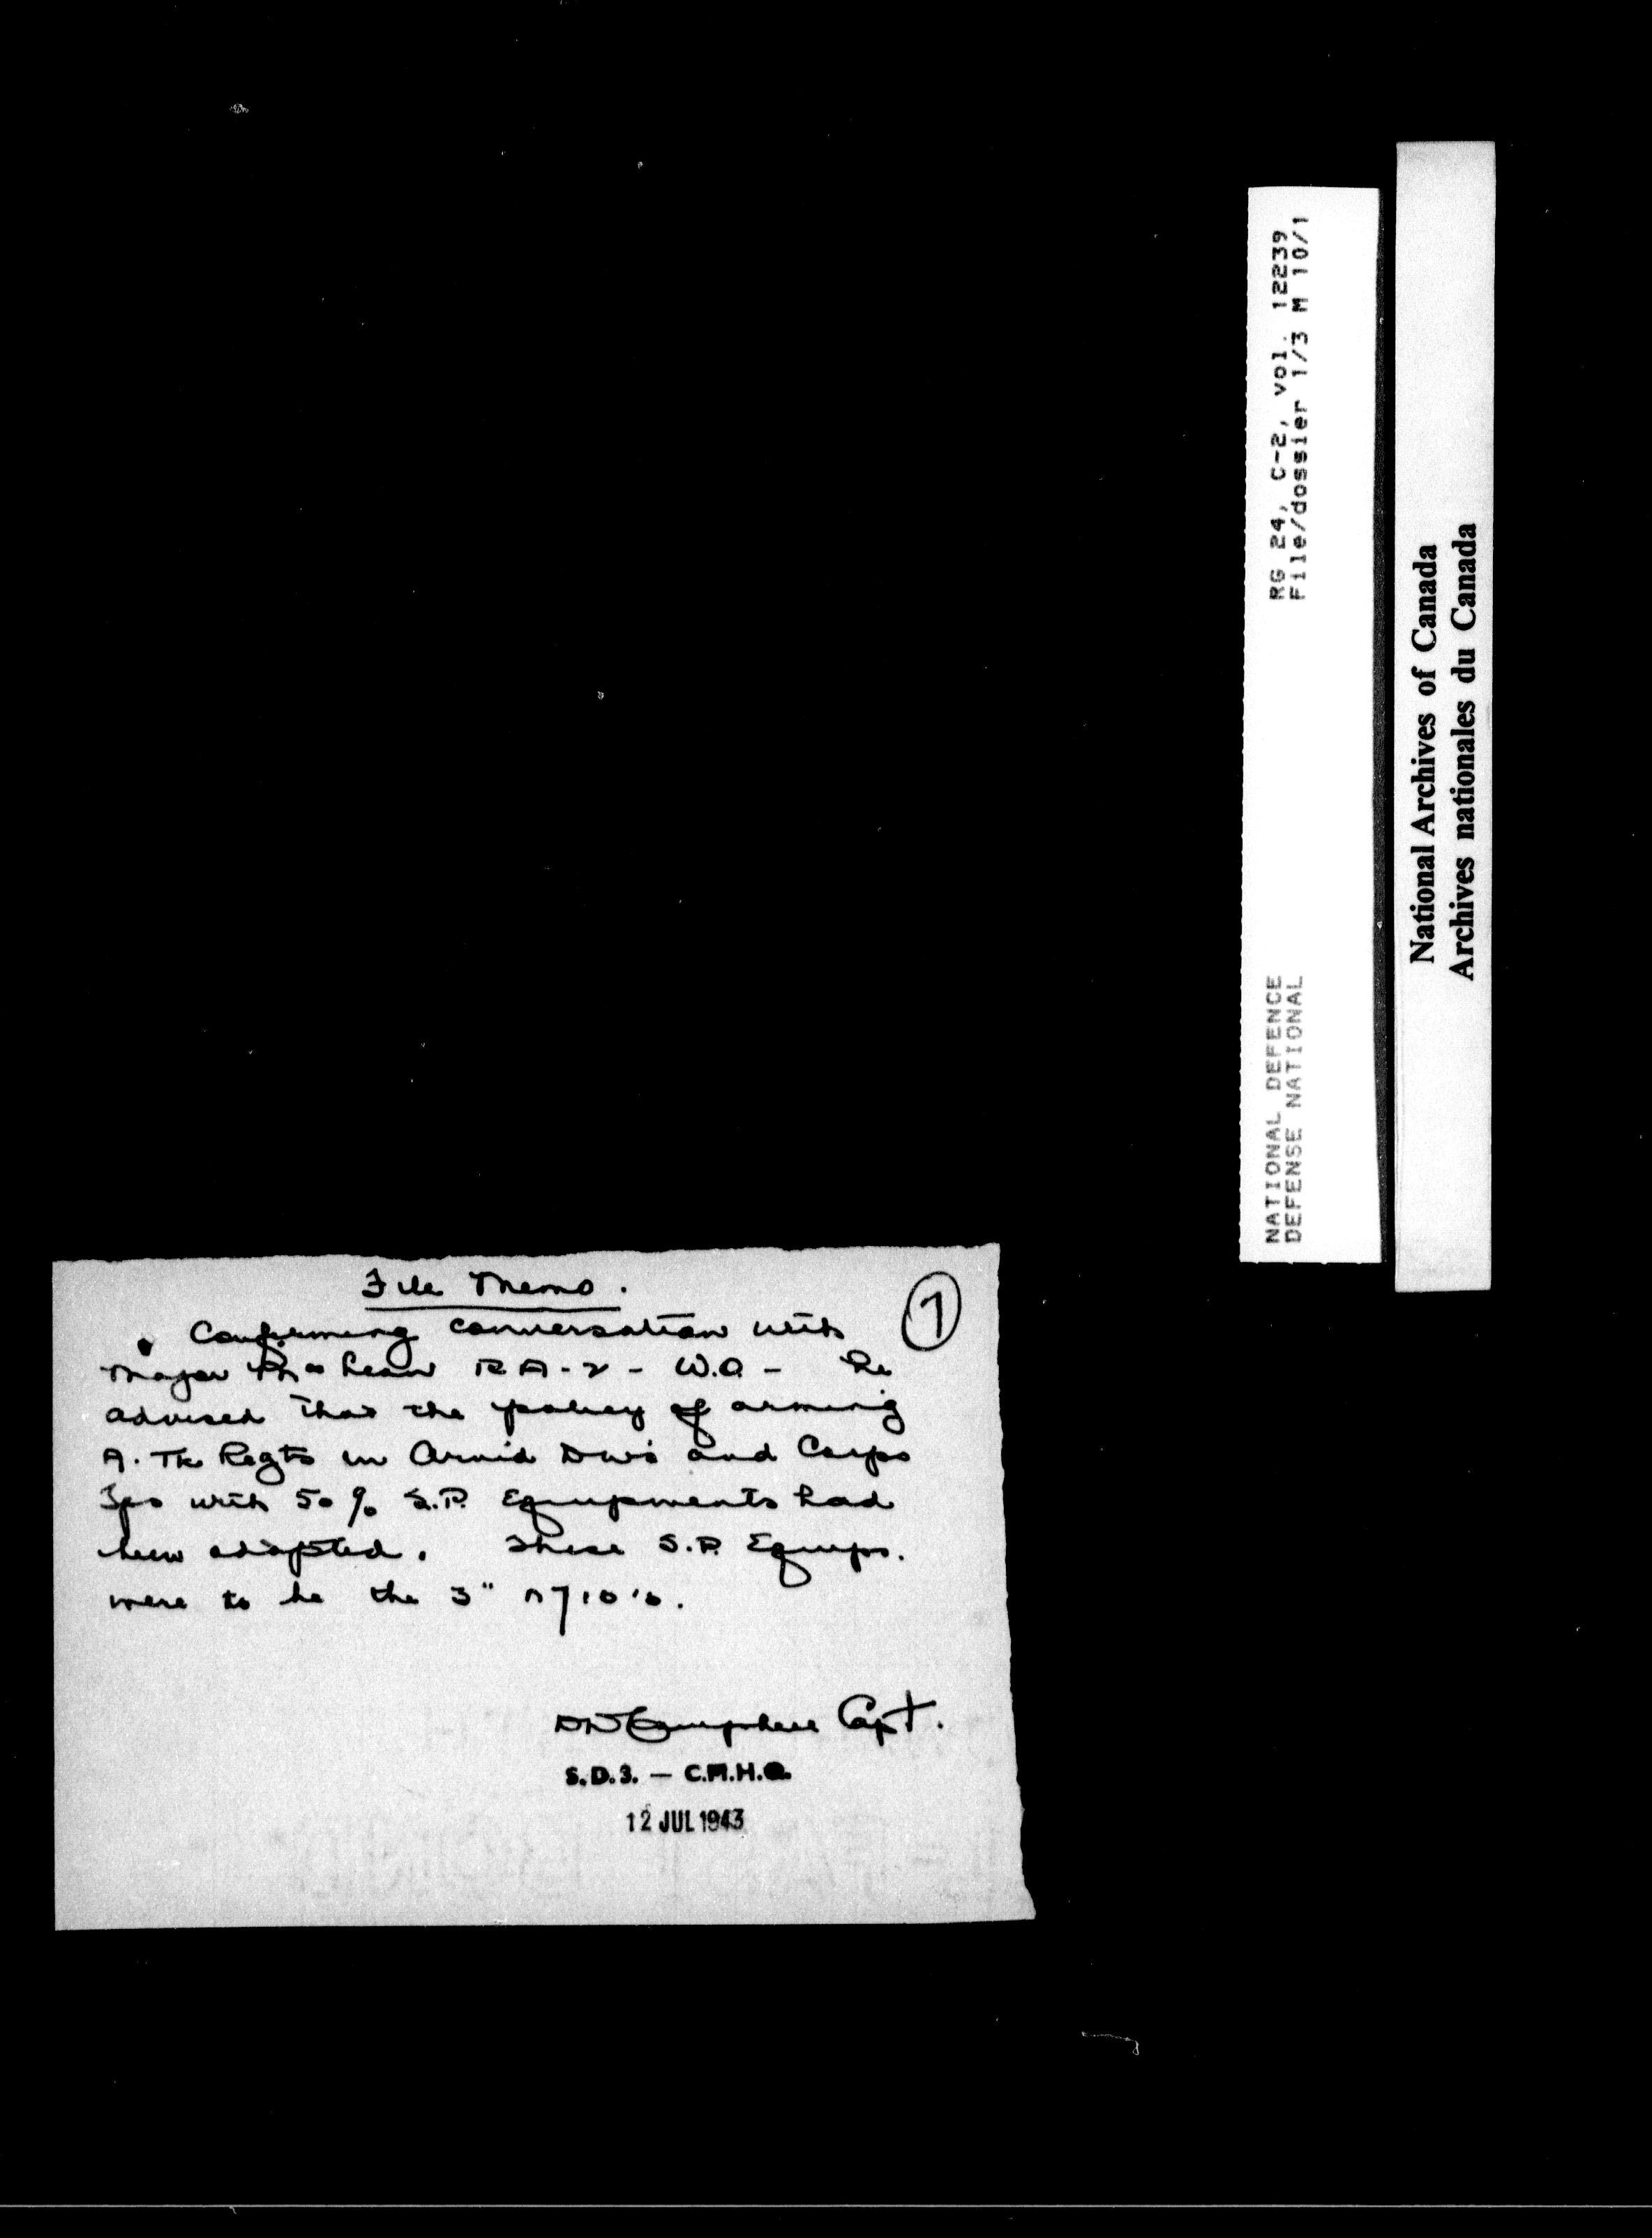 File Memo.
7
Confirming conversation with
Major McLean R A - 2 - W.O - he
advised that the policy of arming
A. Tk Regts in Armd Divs and Corps
Tps with 50% S.P. Equipments had
been adopted. These S.P. Equips.
were to be the 3" M10's.
Campbell Capt.
S.D.3. — C.M.H.Q.
12 JUL 1943
NATIONAL DEFENCE RG 24, C-2, vol. 12239
DEFENSE NATIONAL File/dossier 1/3 M 10/1
National Archives of Canada
Archives nationales du Canada